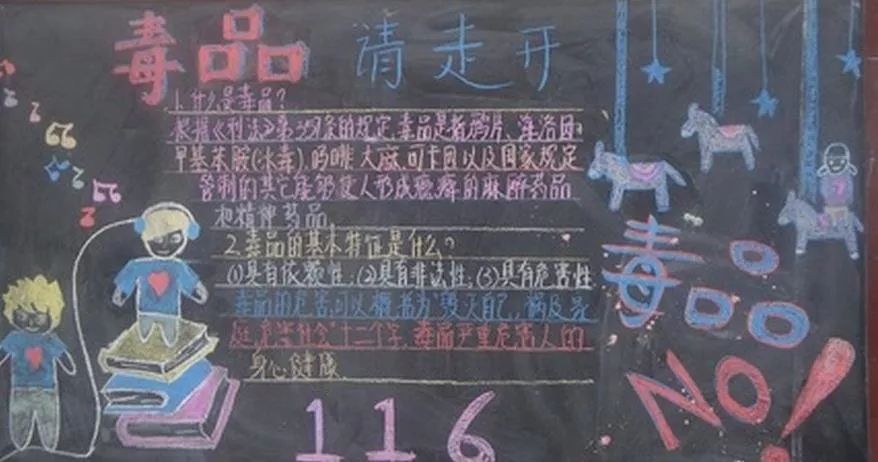 毒品请走开
1.什么是毒品?
根据《刑法》第357条的规定,毒品是指鸦片、海洛因
甲基苯胺(冰毒),吗啡、大麻、可卡因以及国家规定
管制的其它能够使人形成瘾癖的麻醉药品
和精神药品
2.毒品的基本特征是什么?
(1)具有依赖性;(2)具有非法性;(3)具有危害性
毒品的危害,可以概括为"毁灭自己,祸及家
庭,危害社会"十二个字,毒品严重危害人的
身心健康
116
毒品
NO!